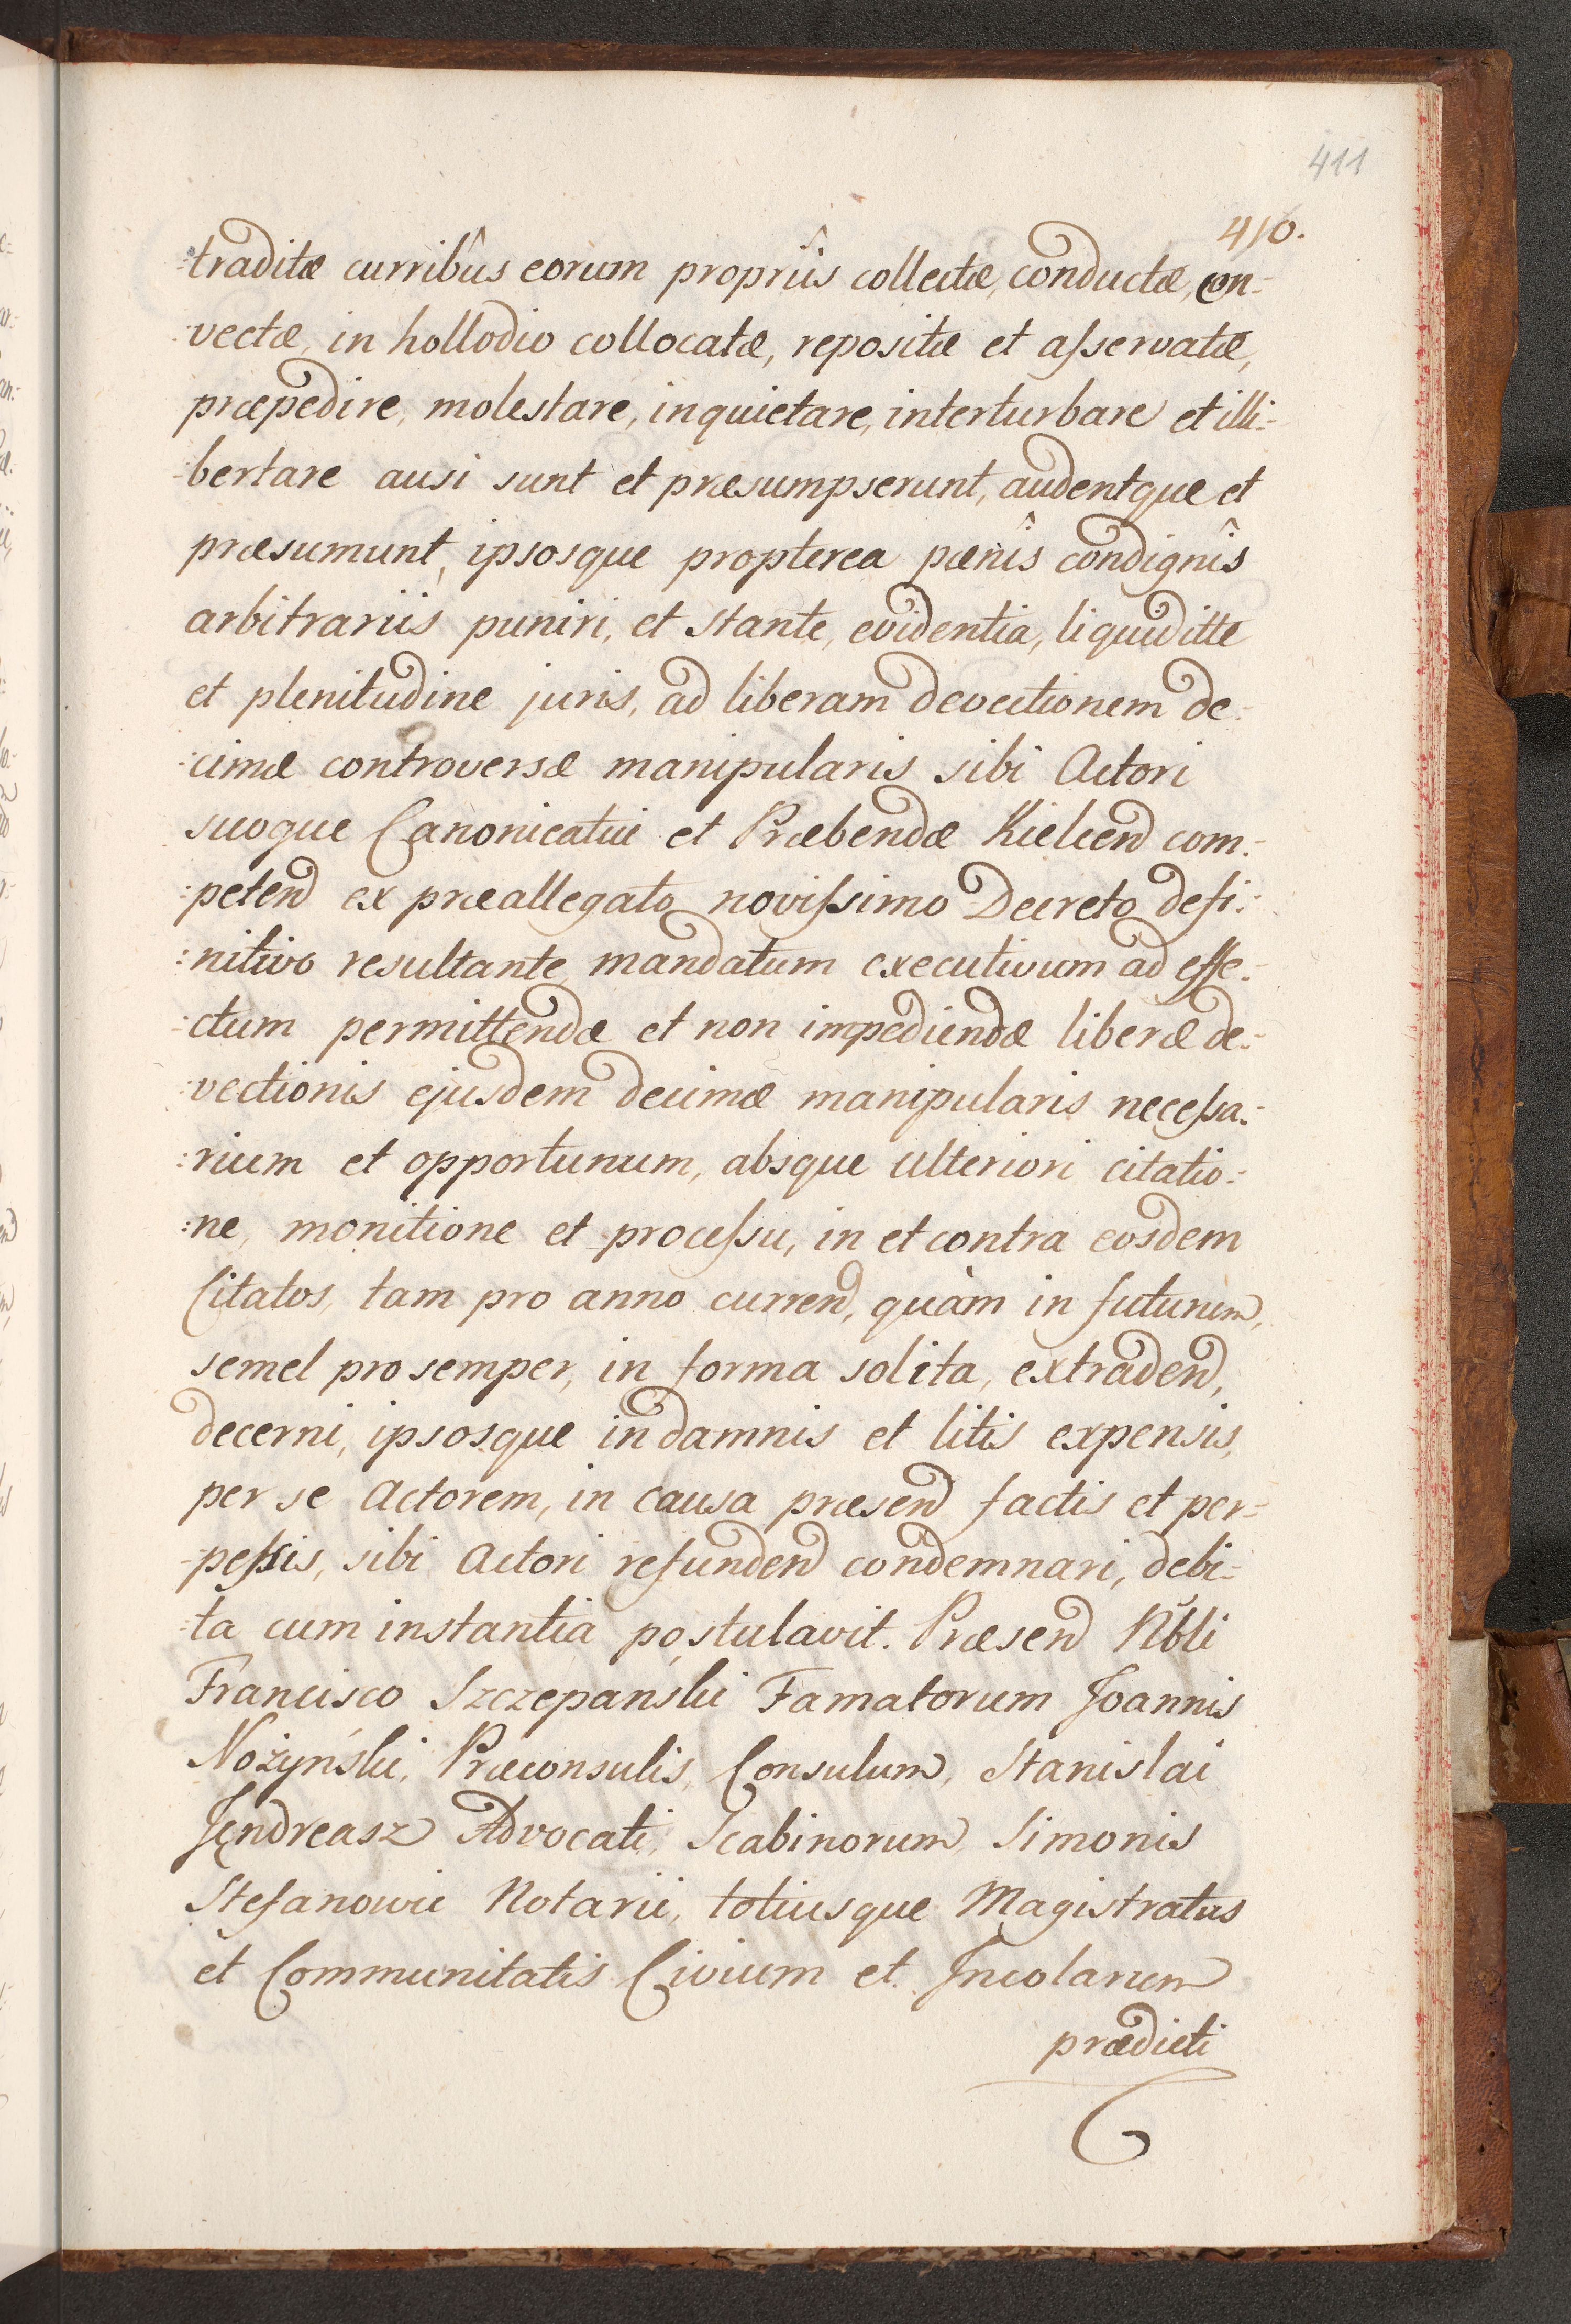 411
410.
traditæ curribûs eorum propriîs collectæ, conductæ, con-
vectæ, in hollodio collocatæ, repositæ et asservatæ,
præpedire, molestare, inquietare, interturbare et illi-
bertare ausi sunt et præsumpserunt, audentque et
præsumunt, ipsosque propterea pœnîs condignîs
arbitrariis puniri, et stante, evidentia, liquiditte
et plenitudine juris, ad liberam devectionem de-
cimæ controversæ manipularis sibi Actori
suoque Canonicatui et Præbendæ Kielcen com-
peten ex præallegato novissimo Decreto defi-
nitivo resultante mandatum executivum ad effe-
ctum permittendæ et non impediendæ liberæ de-
vectionis ejusdem decimæ manipularis necessa-
rium et opportunum, absque ulteriori citatio-
ne, monitione et processu, in et contra eosdem
Citatos, tam pro anno curren, quàm in futurum,
semel pro semper, in forma solita, extraden,
decerni, ipsosque in damnis et litis expensis,
per se Actorem, in causa præsen factis et per-
pessis, sibi Actori refunden condemnari, debi-
ta cum instantia postulavit. Præsen Nbli
Francisco Szczepański Famatorum Joannis
Nożyński, Præconsulis, Consulum, Stanislai
Jędreasz Advocati, Scabinorum, Simonis
Stefanowic Notarii, totiusque Magistratus
et Communitatis Civium et Incolarum
prædicti